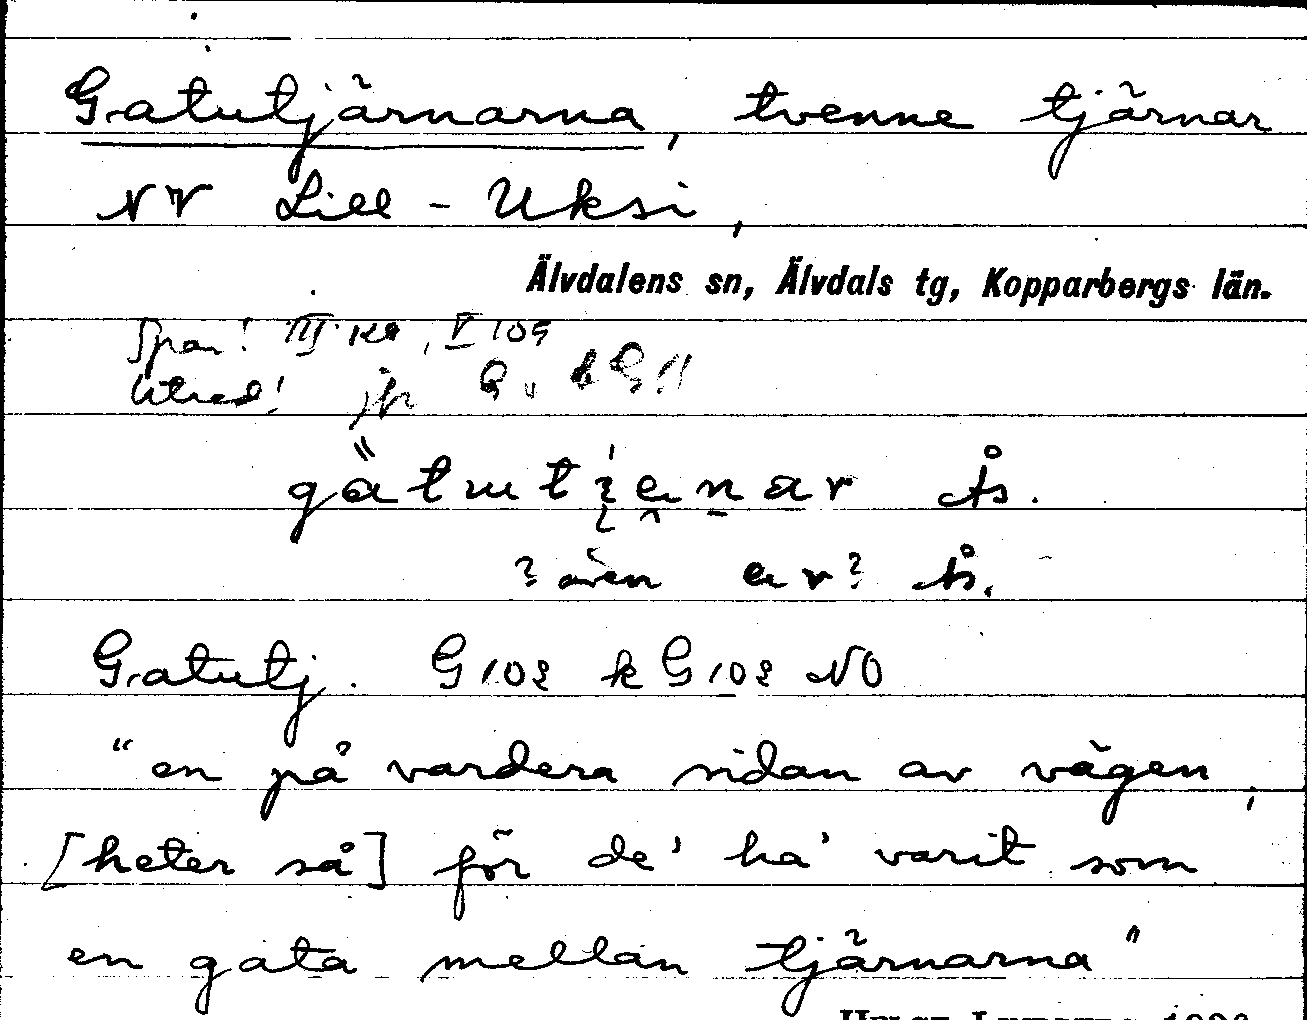 Gatutjärnarna, tvenne tjärnar
NV Lill-Uksi,
Älvdalens sn, Älvdals tg, Kopparbergs län.
V 109
Utred! jfr G
Ås.
? även ar? Ås.
Gatutj. G102 k G102 NO
"en på vardera sidan av vägen,
[heter så] för de' ha' varit som
en gata mellan tjärnarna"